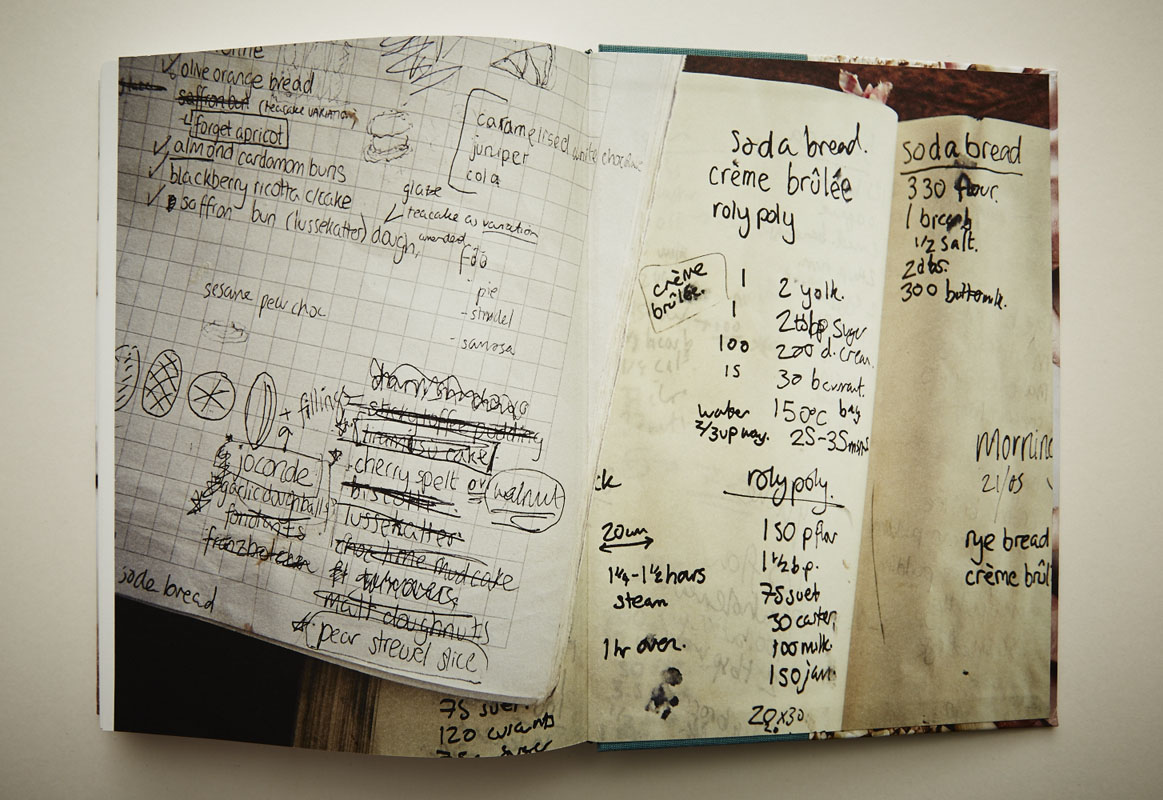 olive orange bread
saffron bun (teacake VARIATION)
forget apricot
almond cardamom buns
blackberry ricotta c/cake
saffron bun (lussekatter) dough,
caramelised white chocolate
juniper
cola
glaze
teacake as variation
- pie
- strudel
- samosa
sesame pear choc
+ filling
sticky toffee pudding
tiramisu cake
cherry spelt or walnut
biscotti
lussekatter
choc lime mud cake
turnovers
malt doughnuts
pear streusel slice
joconde
garlic doughballs
fondants
soda bread
75 suet
120 currants
soda bread.
crème brûlée
roly poly
crème brûlée.
1 2 yolk.
1 2 tbsp sugar
100 200 d. cream
15 30 burrat.
water 2/3 up way.
150°C
25-35mins
ck
roly poly.
20cm
1¼-1½ hours
steam
1 hr oven.
150 p flour
1½ b.p.
75 suet
30 caster
100 milk.
150 jam
20 x 30
soda bread
330 flour.
1 breasb
1/2 salt.
2 tbs.
300 buttermilk.
Morning
21/05
rye bread
crème brûl